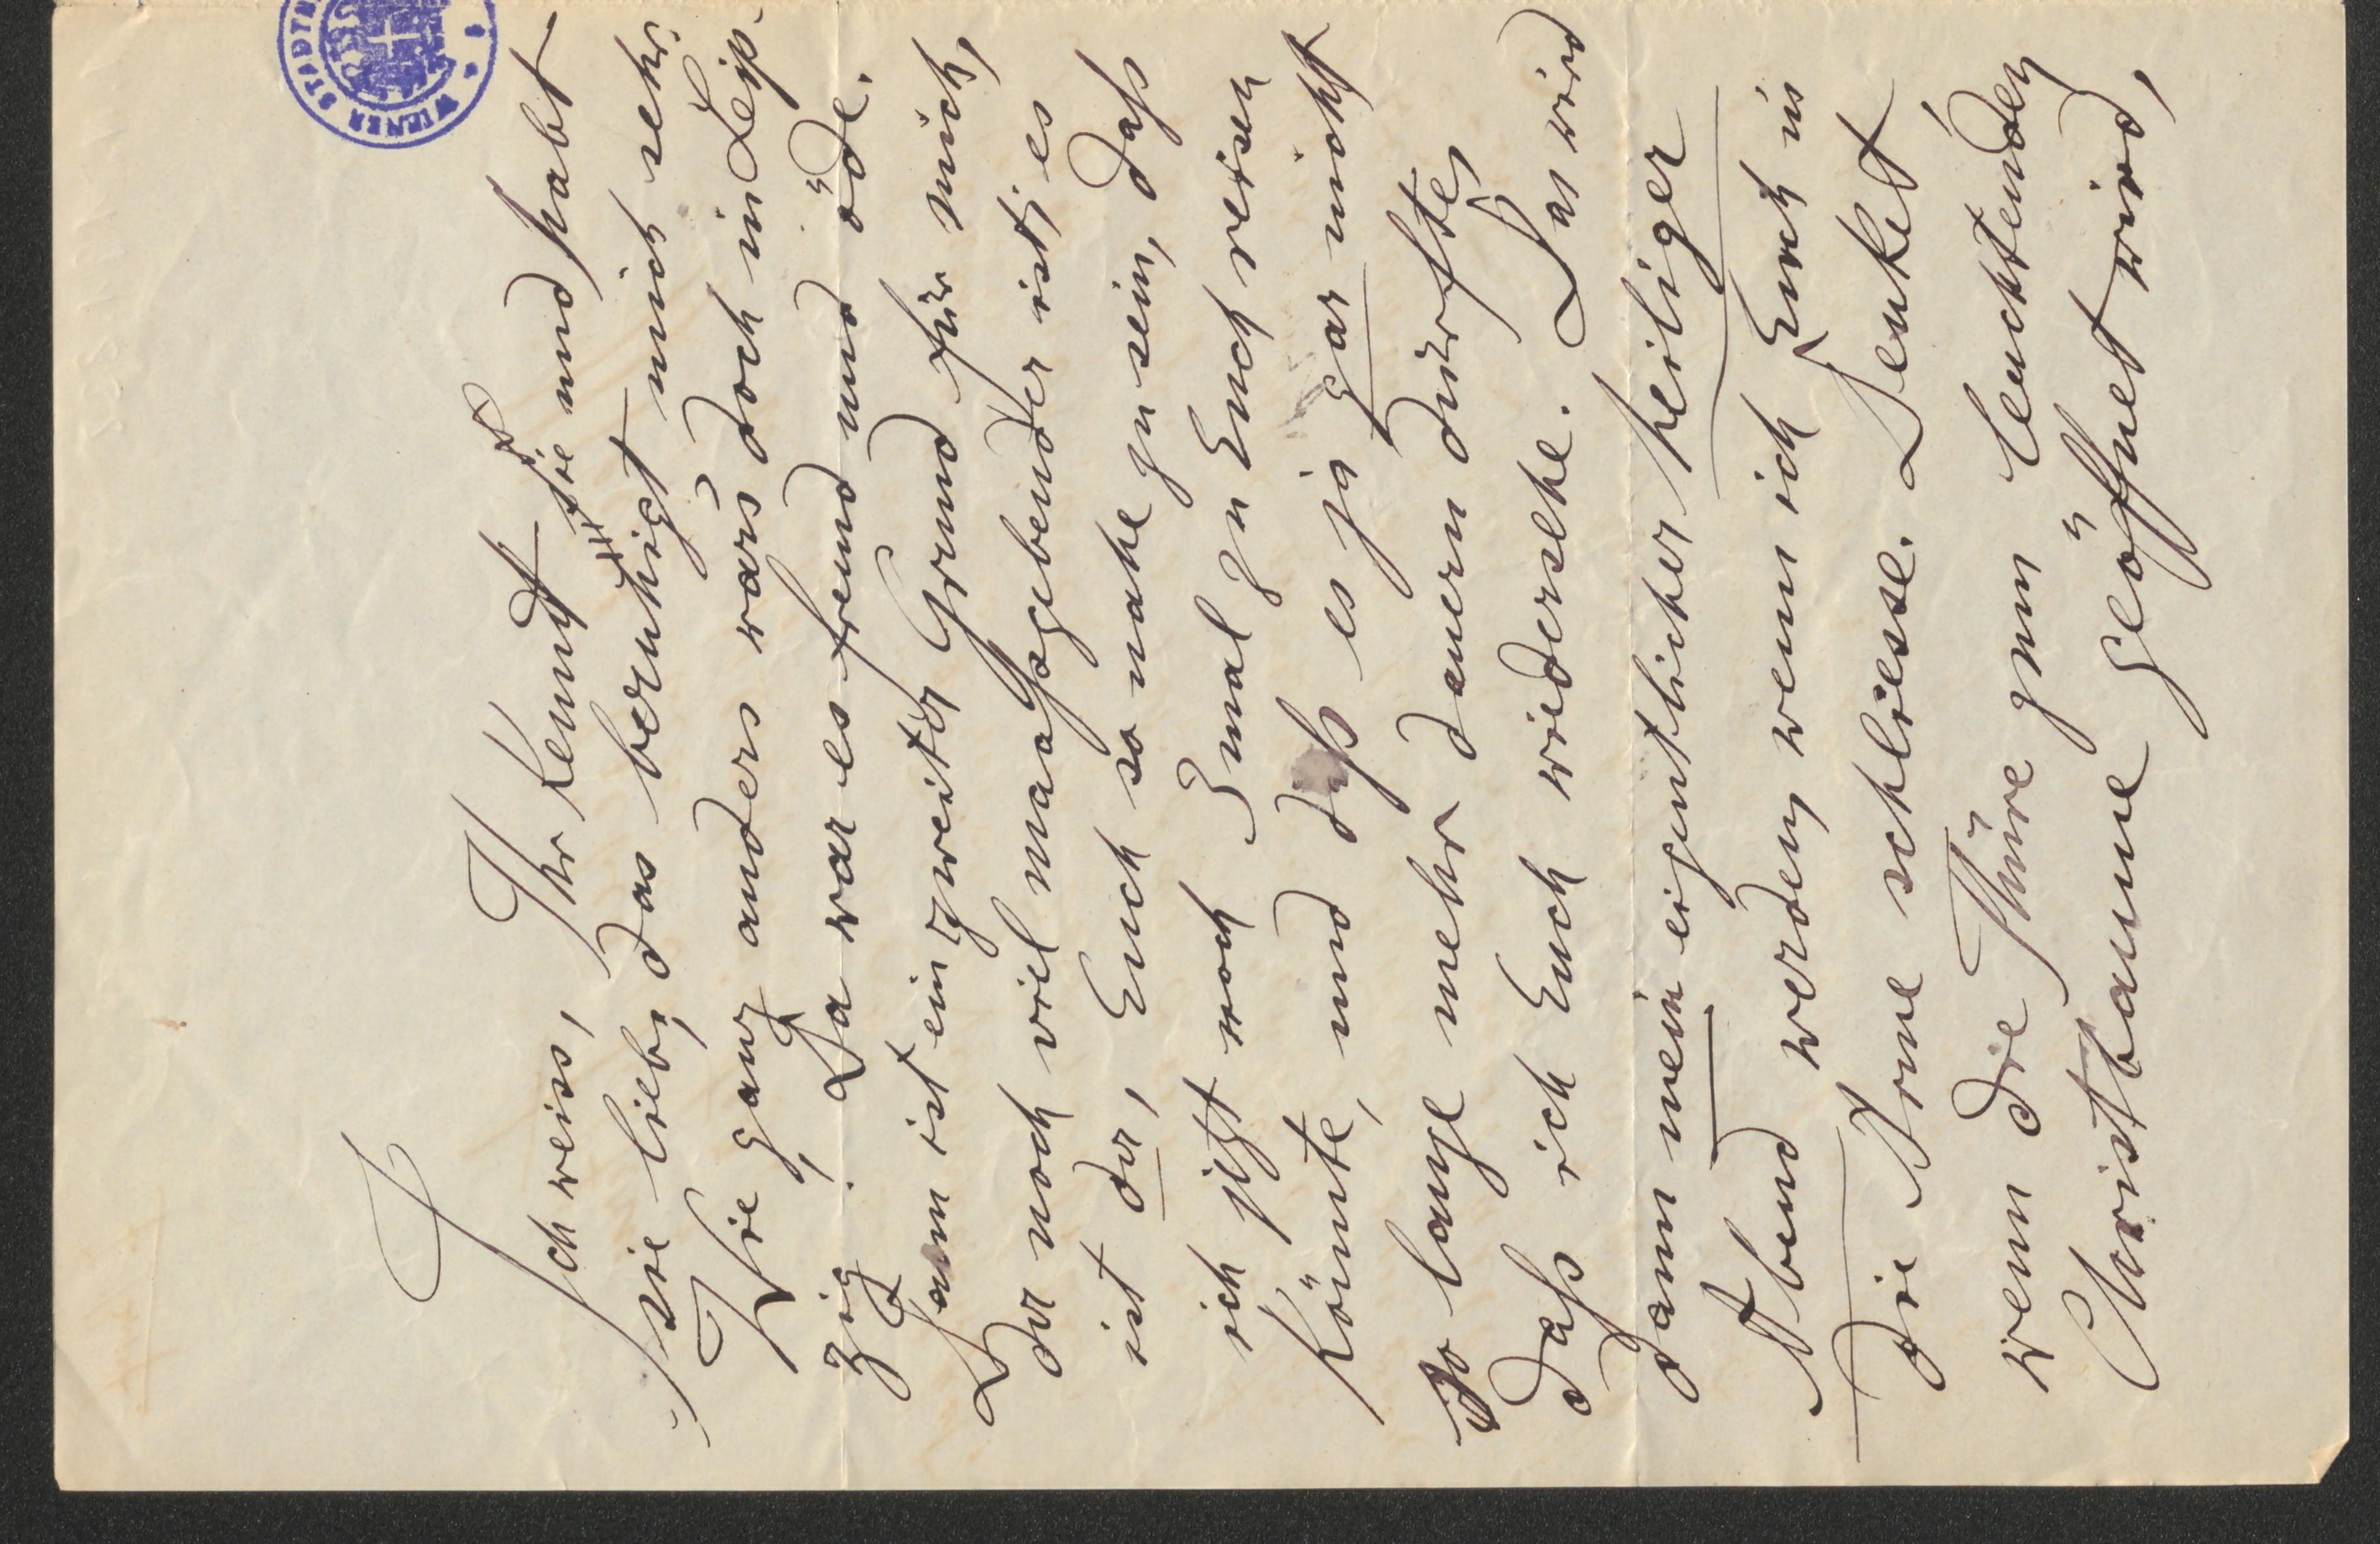 WIENER STADT
Ich weiss, Ihr kennt sie und habt
sie lieb, das beruhigt mich sehr.
Wie ganz anders war's doch in Leip-
zig! Da war es fremd und öde.
Dann ist ein zweiter Grund für mich,
der noch viel maaßgebender ist; es
ist der, Euch so nahe zu sein, daß
ich jetzt noch 3 mal zu Euch reisen
könnte, und daß es ja gar nicht
so lange mehr dauern dürfte,
daß ich Euch wiedersehe. Das wird
dann mein eigentlicher heiliger
Abend werden, wenn ich Euch in
die Arme schliesse. Denket,
wenn die Thüre zum leuchtenden
Christbaume geöffnet wird,